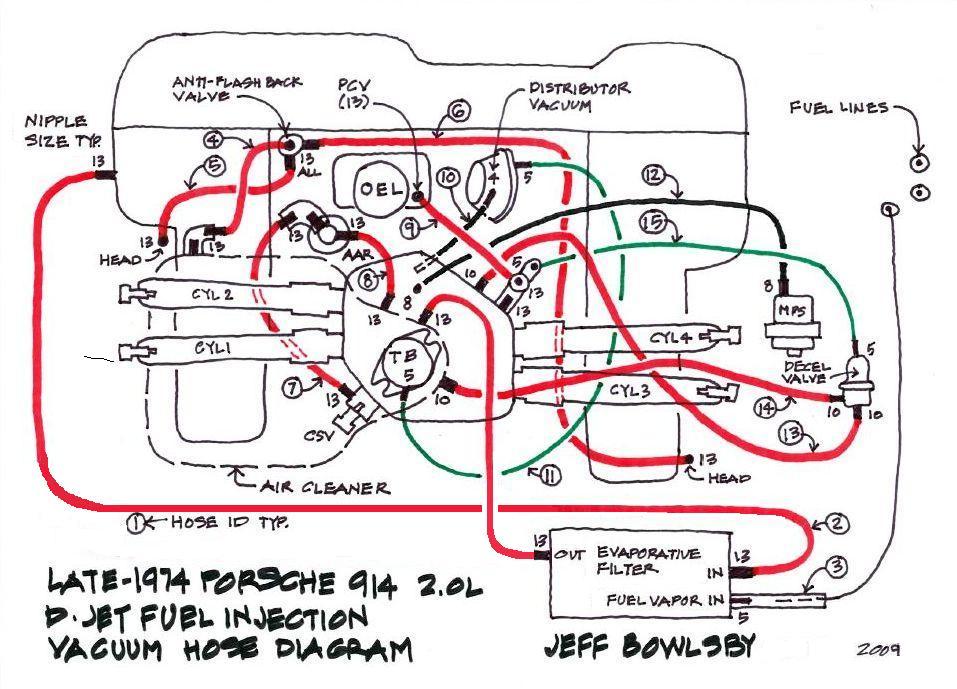 ANTI-FLASHBACK
VALVE
PCV
(13)
DISTRIBUTOR
VACUUM
FUEL LINES
NIPPLE
SIZE TYP.
13
4
5
6
13
ALL
OEL
10
4
5
12
15
9
13
HEAD
13
13
13
AAR
8
13
8
13
10
5
13
8
MPS
CYL 2
CYL 1
TB
5
10
CYL 4
CYL 3
DECEL
VALVE
5
10
10
14
13
7
13
CSV
11
13
HEAD
AIR CLEANER
1 HOSE ID TYP.
2
3
13
OUT
EVAPORATIVE
FILTER
13
IN
FUEL VAPOR IN
5
LATE-1974 PORSCHE 914 2.0L
D-JET FUEL INJECTION
VACUUM HOSE DIAGRAM
JEFF BOWLSBY
2009